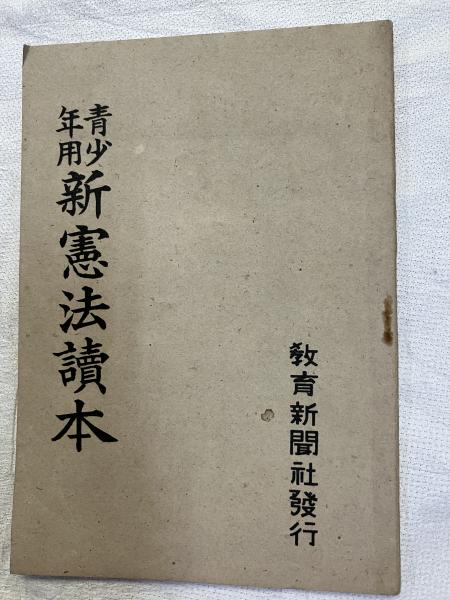 青少年用
新憲法讀本
教育新聞社發行